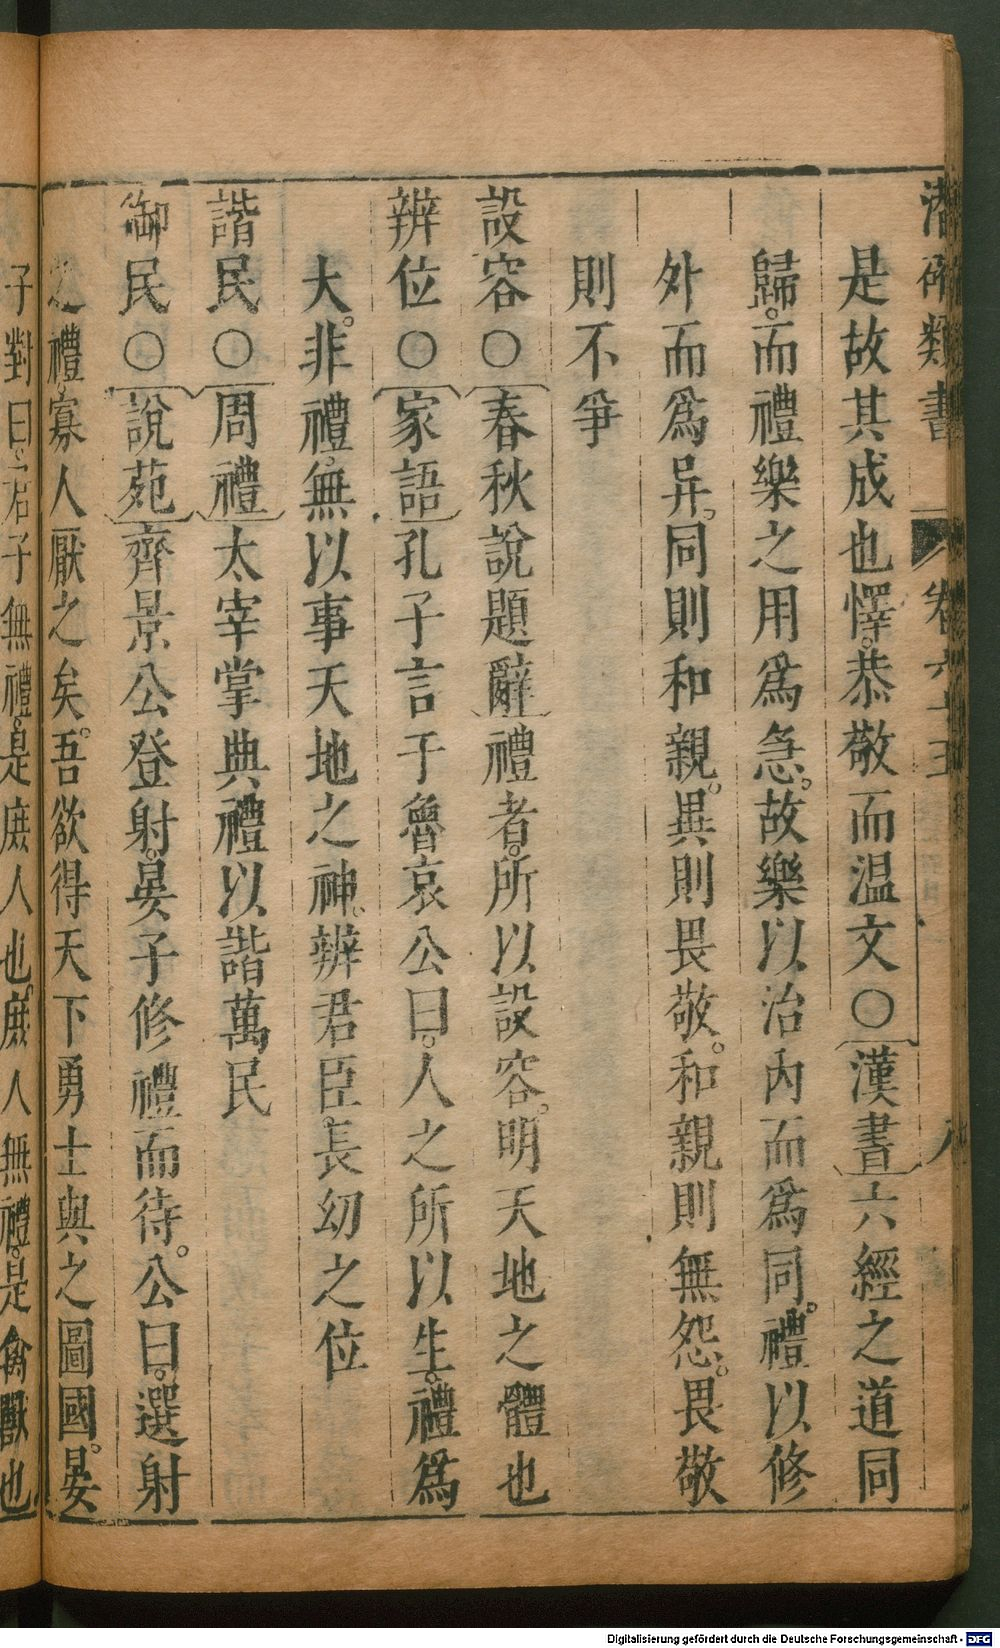 潛確類書 卷六十五 八
是故其成也懌。恭敬而温文○漢書六經之道同
歸。而禮樂之用爲急。故樂以治內而爲同。禮以修
外而爲异。同則和親。異則畏敬。和親則無怨。畏敬
則不爭
設容○春秋說題辭禮者。所以設容。明天地之體也
辨位○家語孔子言于魯哀公曰。人之所以生。禮爲
大。非禮。無以事天地之神。辨君臣。長幼之位
諧民○周禮太宰掌典禮以諧萬民
御民○說苑齊景公登射。晏子修禮而待。公曰。選射
之禮。寡人厭之矣。吾欲得天下勇士與之圖國。晏
子對曰。君子無禮。是庶人也。庶人無禮。是禽獸也
Digitalisierung gefördert durch die Deutsche Forschungsgemeinschaft - DFG